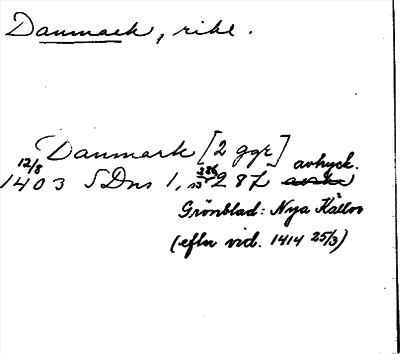 Danmark, rike.
Danmark [2 ggr]
12/8 avtryck.
1403 SDns 1, s 287
Grönblad: Nya Källor
(efter vid. 1414 25/3)